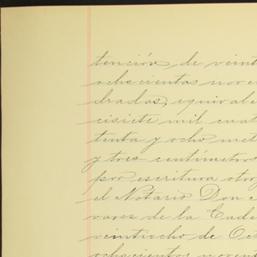 tención de veint
ochocientas noven
dradas, equivale
cisiete mil cuat
tenta y ocho met
y tres centímetros
por escritura otor
el Notario Don
vares de la Cade
veintiocho de
ochocientos noven